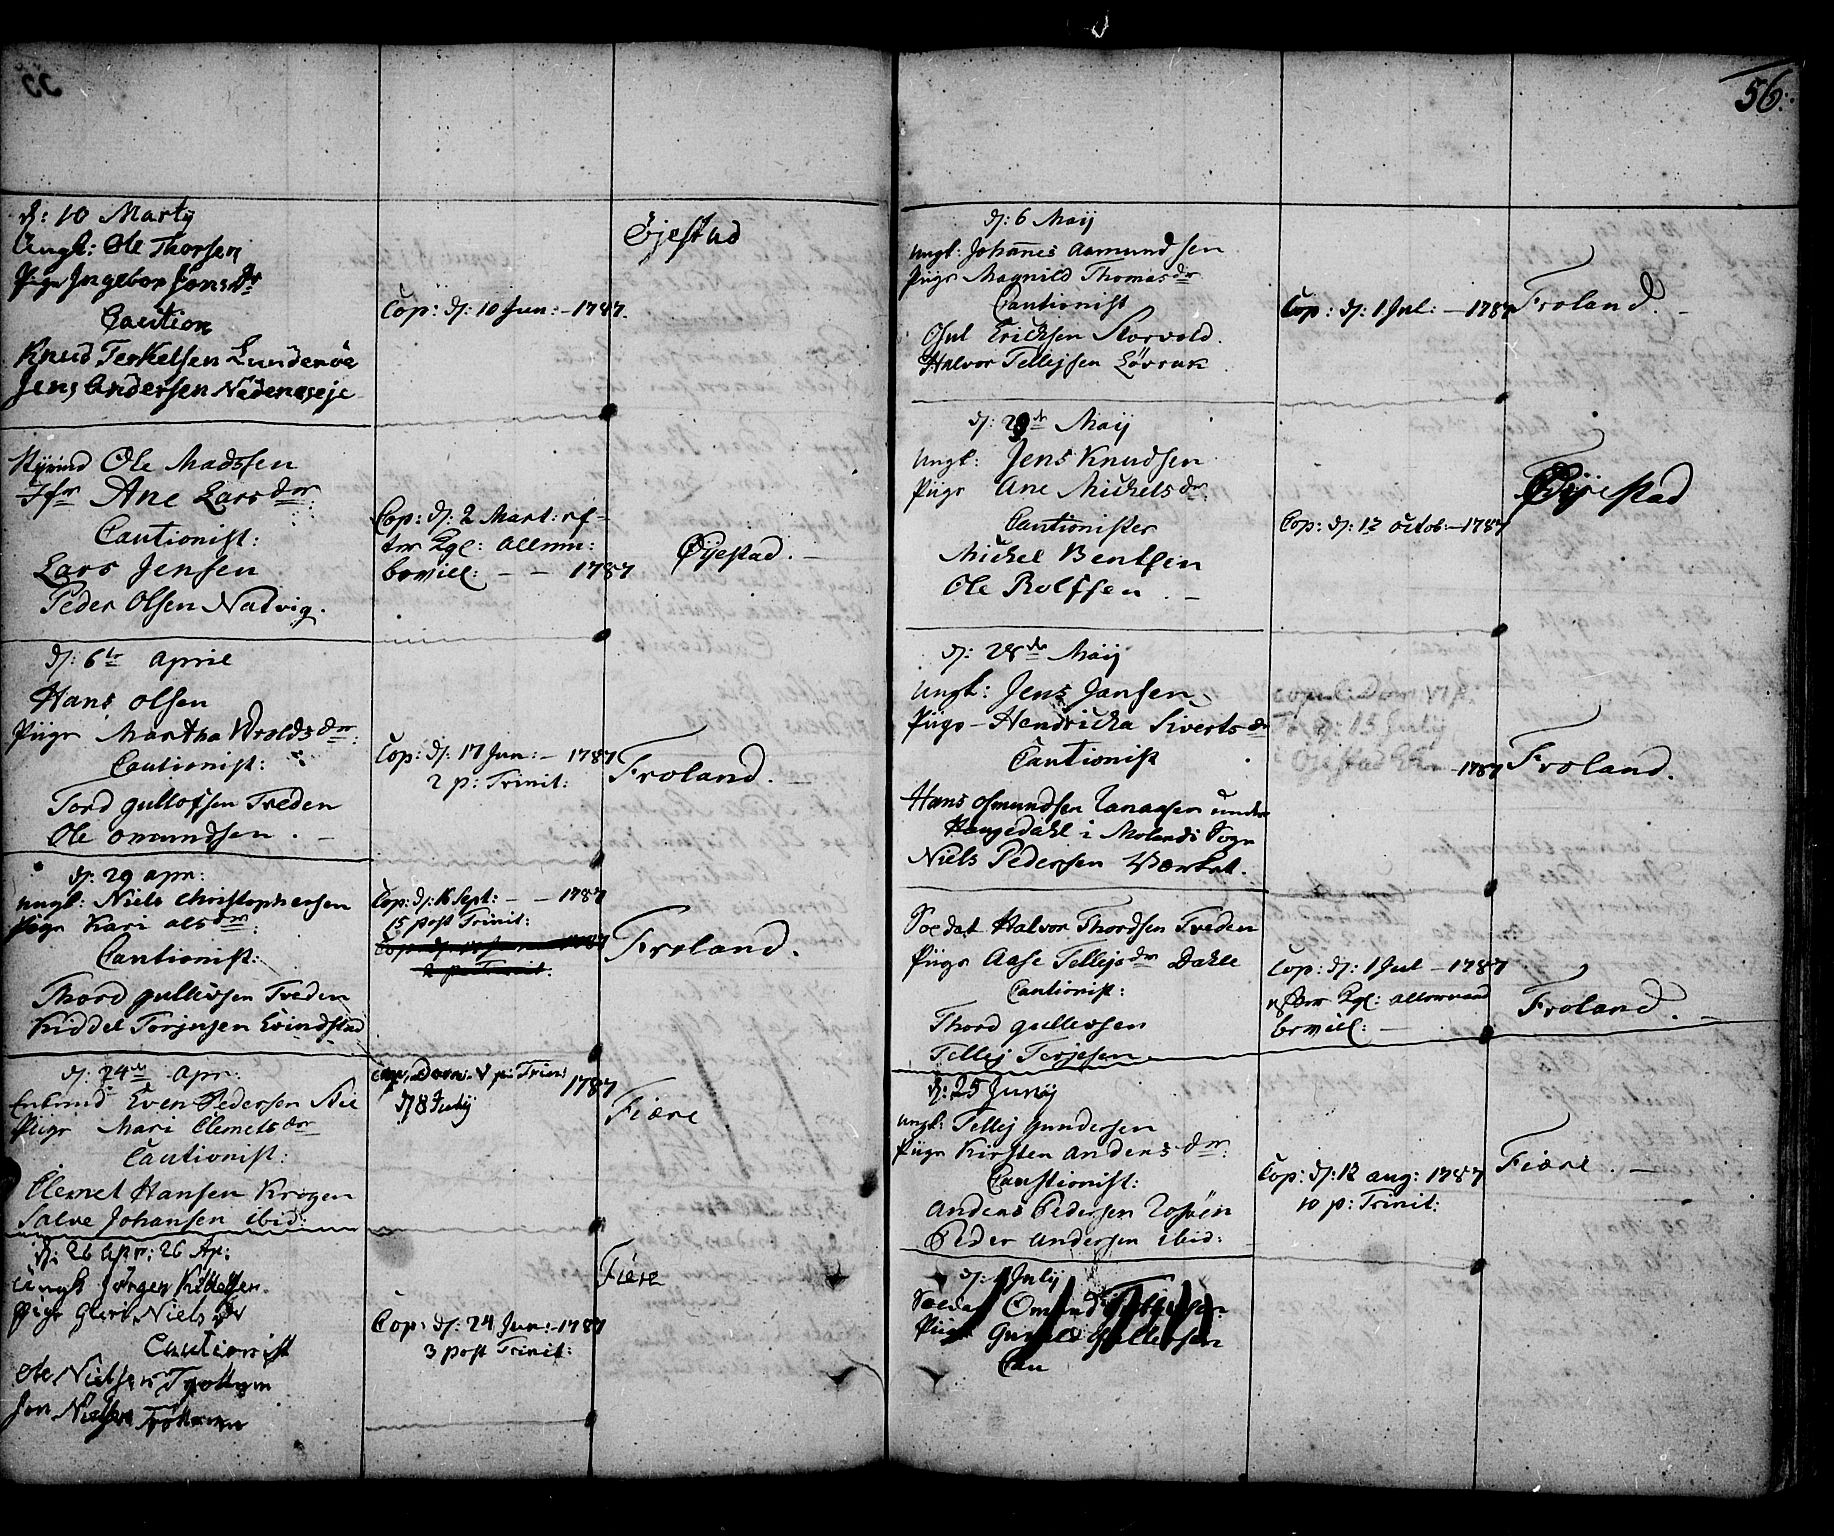 56.
d: 10 Martij
Ungk: Ole Thorsen
Pige Ingebor Jonsdr
Caution
Knud Terkelsen Lundenæs
Jens Andersen Nedeneseje
Cop: d: 10 Jun: - 1787.
Øjestad
Ole Madssen
Jfr Ane Larsdr.
Cautionist:
Lars Jensen
Peder Olsen Natvig.
Cop: d: 2 Mart: ef-
ter Kgl: allern:
bevill: - - 1787
Øjestad. -
d: 6te April
Hans Olsen
Piige Martha Wroldsdr:
Cautionist:
Tord gullofsen Treden
Ole Omundsen. -
Cop: d: 17 Jun: - 1787
2 p: Trinit:
Froland. -
d: 29 apr:
ungk: Niels Christophersen
Piige Kari Olsdr:
Cautionist:
Thord gullevsen Treden
Kiddel Torjusen Evindstad
Cop: d: 16 Sept: - - 1787
15 post Trinit:
Froland.
d: 24de Apr:
Enkmd Even Pedersen
Piige Mari Clemetsdr
Cautionist:
Clemet Hansen Krogen
Salve Johansen ibid:
Cop. Dom. V p: Trin:
d 8 Julij 1787
Fiære
d: 26 Apr: 26 Ap:
Ungk Jörgen Kittelsen.
Pige Niels dr
Cautionist
Ole Nielsen
Jon Nielsen
Cop: d: 24 Jun: - 1787
3 post Trinit:
Fiere
d: 6 Maij
ungk: Johannes Aamundsen
Piige Magnild Thomasdr
Cautionist
Osul Ericksen Storvold.
Halvor Tellejsen Løvrak
Cop: d: 1 Jul: - 1787
Froland. -
d: 29de Maij
ungk: Jens Knudsen
Piige Ane Michelsdr.
Cautionister
Michel Bentsen
Ole Rolfsen. -
Cop: d: 12 octob: - 1787
Øjestad
d: 28de Maij
ungk: Jens Jansen
Piige - Hendricka Sivertsdr
Cautionist
Hans Osmundsen under
Haugedahl i Molands Sogn
Niels Pedersen Værket.
copul: Dom: VI p:
Tr: d: 15 Julij
Øjestad - 1787
Froland.
Soldat Halvor Thordsen Treden
Piige Aase Tellejsdr Dahle
Cautionist:
Thord gullevsen
Tellej Terjesen
Cop: d: 1 Jul - 1787
efter Kgl: allernaad
bevill: -
Froland. -
d: 25 Junij
ungk: Tellej Gundersen
Piige Kirsten Andersdr:
Cautionist:
Anders Pedersen
Peder Andersen ibid:
Cop: d: 12 aug: 1787
10 p: Trinit:
Fiære. -
d: Julij
Soldat Omund
Piige Gullevsen
Cau